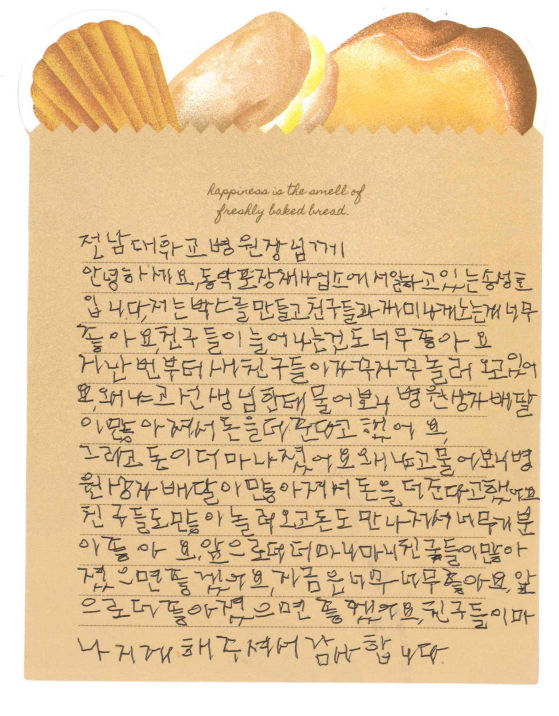 happiness is the smell of
freshly baked bread.
전남대학교병원장님께
안녕하세요, 동약포장재사업소에서일하고있는송성호
입니다, 저는박스를만들고친구들과재미나게노는게너무
좋아요, 친구들이늘어나는건도너무좋아요
지난번부터새친구들이자꾸자꾸놀러오고있어
요, 왜냐고선생님한테물어보니 병원상자배달
이많아져서돈을더준다고했어요,
그리고돈이더마나졌어요왜냐고물어보니병
원상자배달이많아져서돈을더준다고했어요
친구들도많이놀러오고돈도만나져서너무기분
이좋아요, 앞으로더더마니마니친구들이많아
졌으면좋겠어요, 지금은너무너무좋아요, 앞
으로더좋아졌으면좋겠어요, 친구들이마
나지게해주셔서감사합니다.